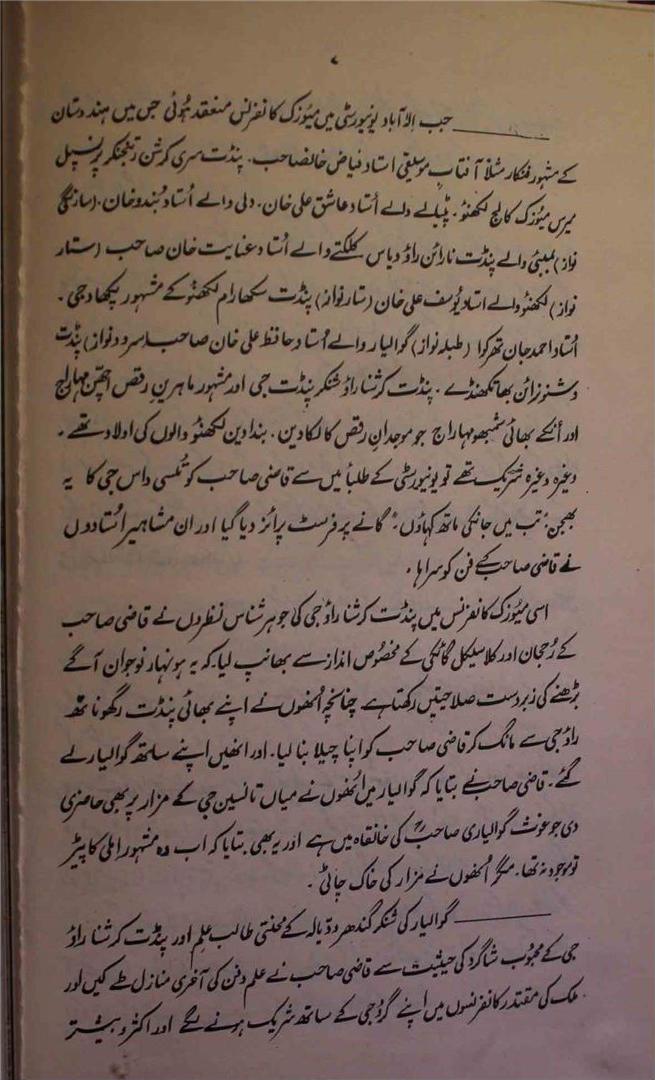 ۷
جب الہ آباد یونیورسٹی میں میوزک کانفرنس منعقد ہوئی جس میں ہندوستان
کے مشہور فنکار مثلاً آفتابِ موسیقی استاد فیاض خانصاحب۔ پنڈت سری کرشن رتنجنکر پرنسپل
میرس میوزک کالج لکھنؤ۔ پٹیالے والے اُستاد عاشق علی خان۔ دلی والے اُستاد بُندو خان۔ (سارنگی
نواز) بمبئی والے پنڈت نارائن راؤ ویاس کلکتے والے اُستاد عنایت خان صاحب (ستار
نواز) لکھنؤ والے استاد یُوسف علی خان (ستار نواز) پنڈت سکھارام لکھنؤ کے مشہور پکھاوجی۔
اُستاد احمد جان تھرکوا (طبلہ نواز) گوالیار والے اُستاد حافظ علی خان صاحب (سرود نواز) پنڈت
وشنو نرائن بھاتکھنڈے۔ پنڈت کرشنا راؤ شنکر پنڈت جی اور مشہور ماہرینِ رقص اچھن مہاراج
اور اُنکے بھائی شمبھو مہاراج جو موجدانِ رقص کالکا دین۔ بندا دین لکھنؤ والوں کی اولاد تھے۔
وغیرہ وغیرہ شریک تھے تو یونیورسٹی کے طلبا میں سے قاضی صاحب کو تُلسی داس جی کا یہ
بھجن: تب میں جانکی ناتھ کہاؤں: گانے پر فرسٹ پرائز دیا گیا اور ان مشاہیر اُستادوں
نے قاضی صاحب کے فن کو سراہا۔
اسی میوزک کانفرنس میں پنڈت کرشنا راؤ جی کی جوہر شناس نظروں نے قاضی صاحب
کے رُجحان اور کلاسیکل گائکی کے مخصوص انداز سے بھانپ لیا۔ کہ یہ ہونہار نوجوان آگے
بڑھنے کی زبردست صلاحیتیں رکھتا ہے چنانچہ اُنھوں نے اپنے بھائی پنڈت رگھوناتھ
راؤ جی سے مانگ کر قاضی صاحب کو اپنا چیلا بنا لیا۔ اور انھیں اپنے ساتھ گوالیار لے
گئے۔ قاضی صاحب نے بتایا کہ گوالیار میں اُنھوں نے میاں تانسین جی کے مزار پر بھی حاضری
دی جو غوث گوالیاری صاحبؒ کی خانقاہ میں ہے اور یہ بھی بتایا کہ اب وہ مشہور املی کا پیڑ
تو موجود نہ تھا۔ مگر اُنھوں نے مزار کی خاک چاٹی۔
گوالیار کی شنکر گندھرو ودیالہ کے محنتی طالب علم اور پنڈت کرشنا راؤ
جی کے محبُوب شاگرد کی حیثیت سے قاضی صاحب نے علم و فن کی آخری منازل طے کیں اور
ملک کی مقتدر کانفرنسوں میں اپنے گُروجی کے ساتھ شریک ہونے لگے اور اکثر و بیشتر